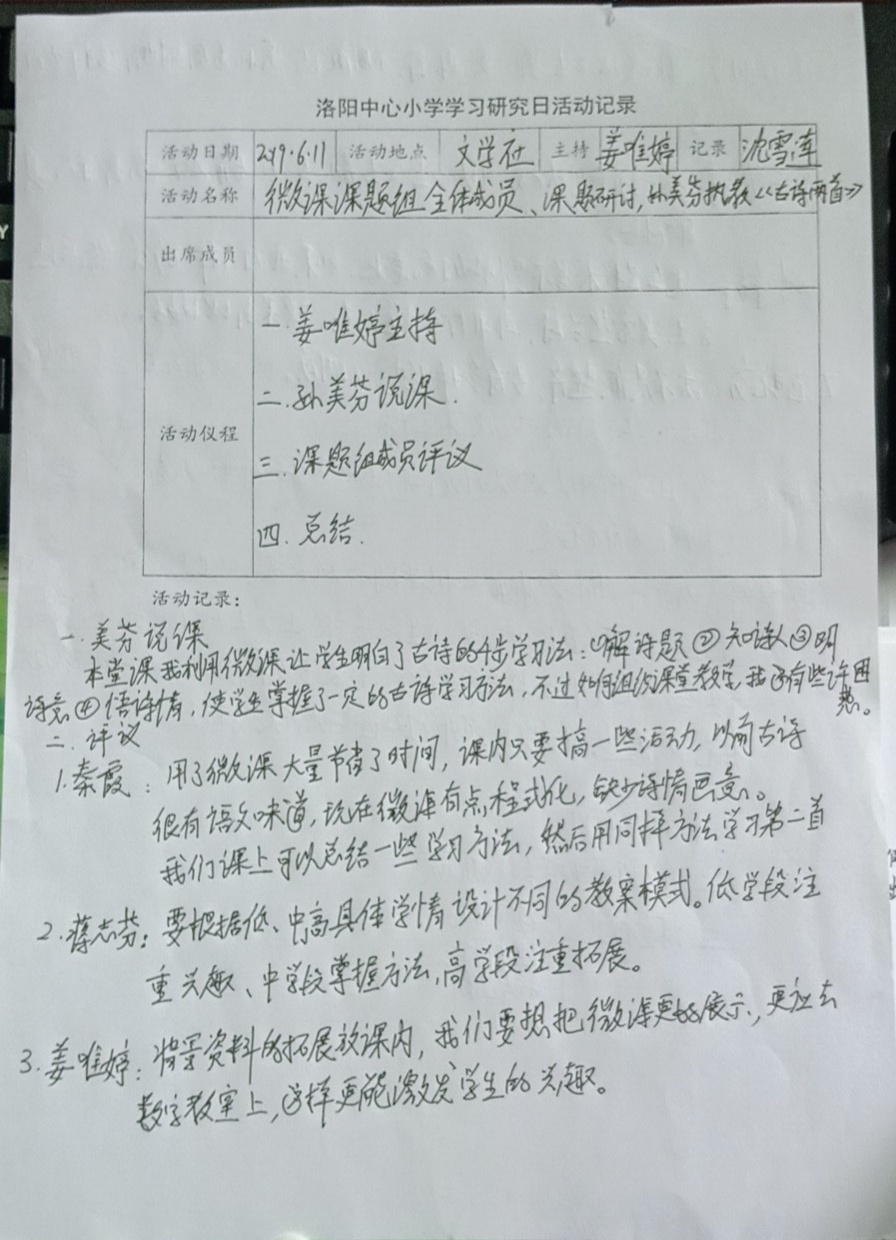 洛阳中心小学学习研究日活动记录
活动日期 2019.6.11 活动地点 文学社 主持 姜唯婷 记录 沈雪莲
活动名称 微课课题组全体成员、课题研讨,孙美芬执教《古诗两首》
出席成员
活动仪程
一.姜唯婷主持
二.孙美芬说课.
三.课题组成员评议
四.总结.
活动记录:
一.美芬说课
本堂课我利用微课让学生明白了古诗的4步学习法:①解诗题②知诗人③明
诗意④悟诗情,使学生掌握了一定的古诗学习方法,不过如何组织课堂教学,我还有些许困
惑。
二.评议
1.秦霞:用了微课大量节省了时间,课内只要搞一些活动,以前古诗
很有语文味道,现在微课有点程式化,缺少诗情画意。
我们课上可以总结一些学习方法,然后用同样方法学习第二首
2.蒋志芬:要根据低、中高具体学情设计不同的教案模式。低学段注
重兴趣、中学段掌握方法,高学段注重拓展。
3.姜唯婷:资料的拓展放课内,我们要想把微课更好的展示,更应去
数字教室上,这样更能激发学生的兴趣。